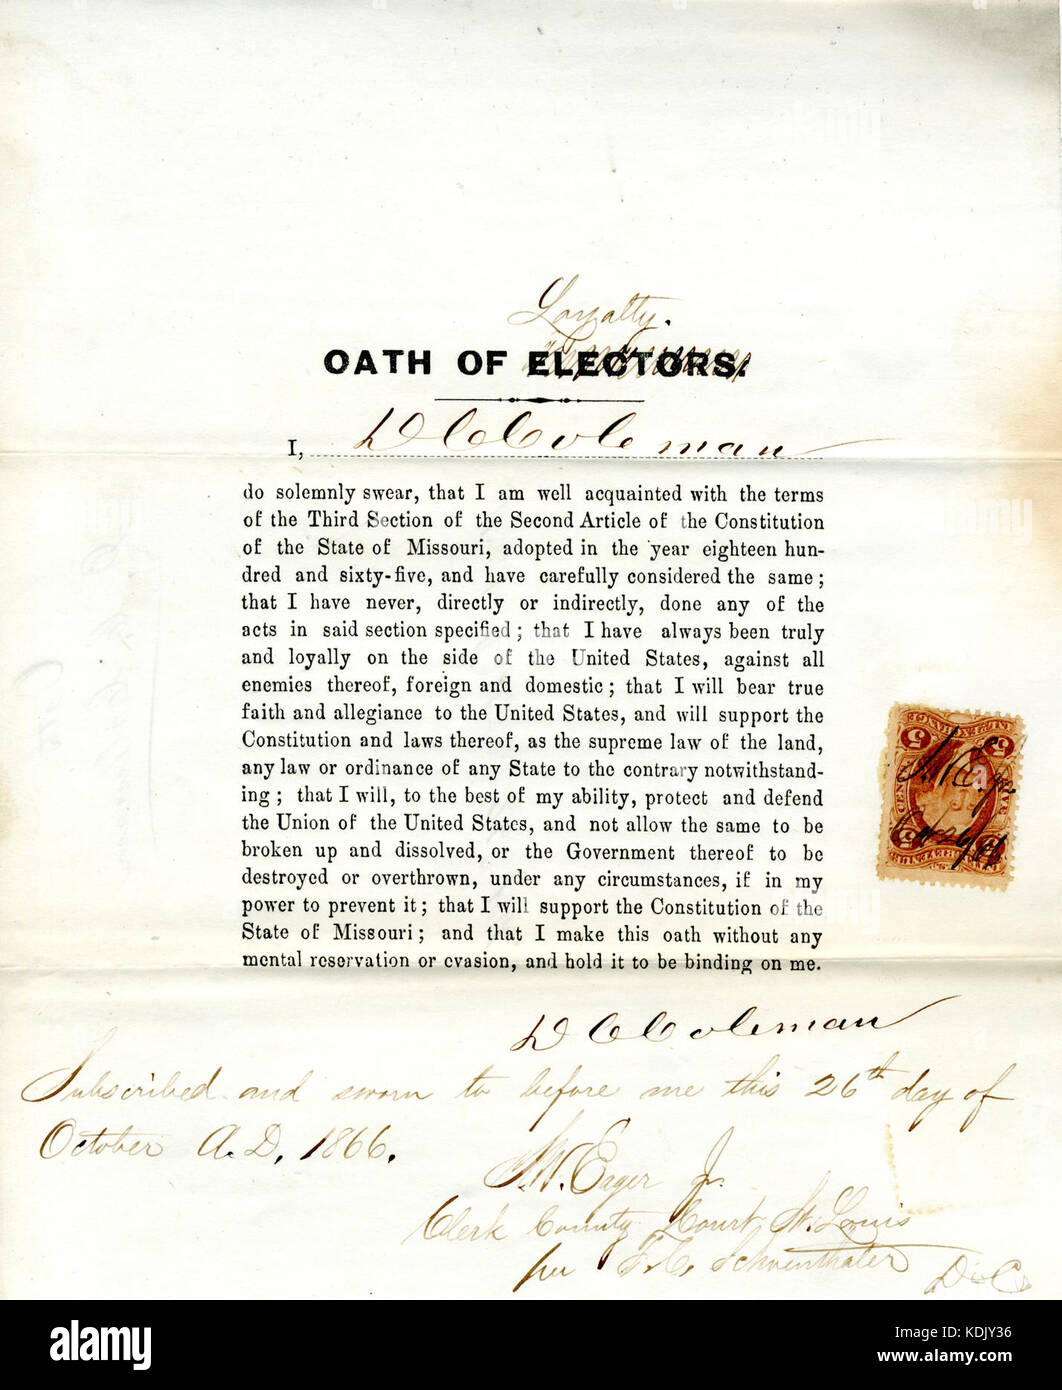 Loyalty.
OATH OF ELECTORS.
I, D C Coleman
do solemnly swear, that I am well acquainted with the terms
of the Third Section of the Second Article of the Constitution
of the State of Missouri, adopted in the year eighteen hun-
dred and sixty-five, and have carefully considered the same;
that I have never, directly or indirectly, done any of the
acts in said section specified; that I have always been truly
and loyally on the side of the United States, against all
enemies thereof, foreign and domestic; that I will bear true
faith and allegiance to the United States, and will support the
Constitution and laws thereof, as the supreme law of the land,
any law or ordinance of any State to the contrary notwithstand-
ing; that I will, to the best of my ability, protect and defend
the Union of the United States, and not allow the same to be
broken up and dissolved, or the Government thereof to be
destroyed or overthrown, under any circumstances, if in my
power to prevent it; that I will support the Constitution of the
State of Missouri; and that I make this oath without any
mental reservation or evasion, and hold it to be binding on me.
D C Coleman
Subscribed and sworn to before me this 26th day of
October A.D. 1866.
Eager Jr.
Clerk County Court St. Louis
per Schoenthaler D.C.
5 5
CENTS FIVE
5 5
alamy
Image ID: KDJY36
www.alamy.com